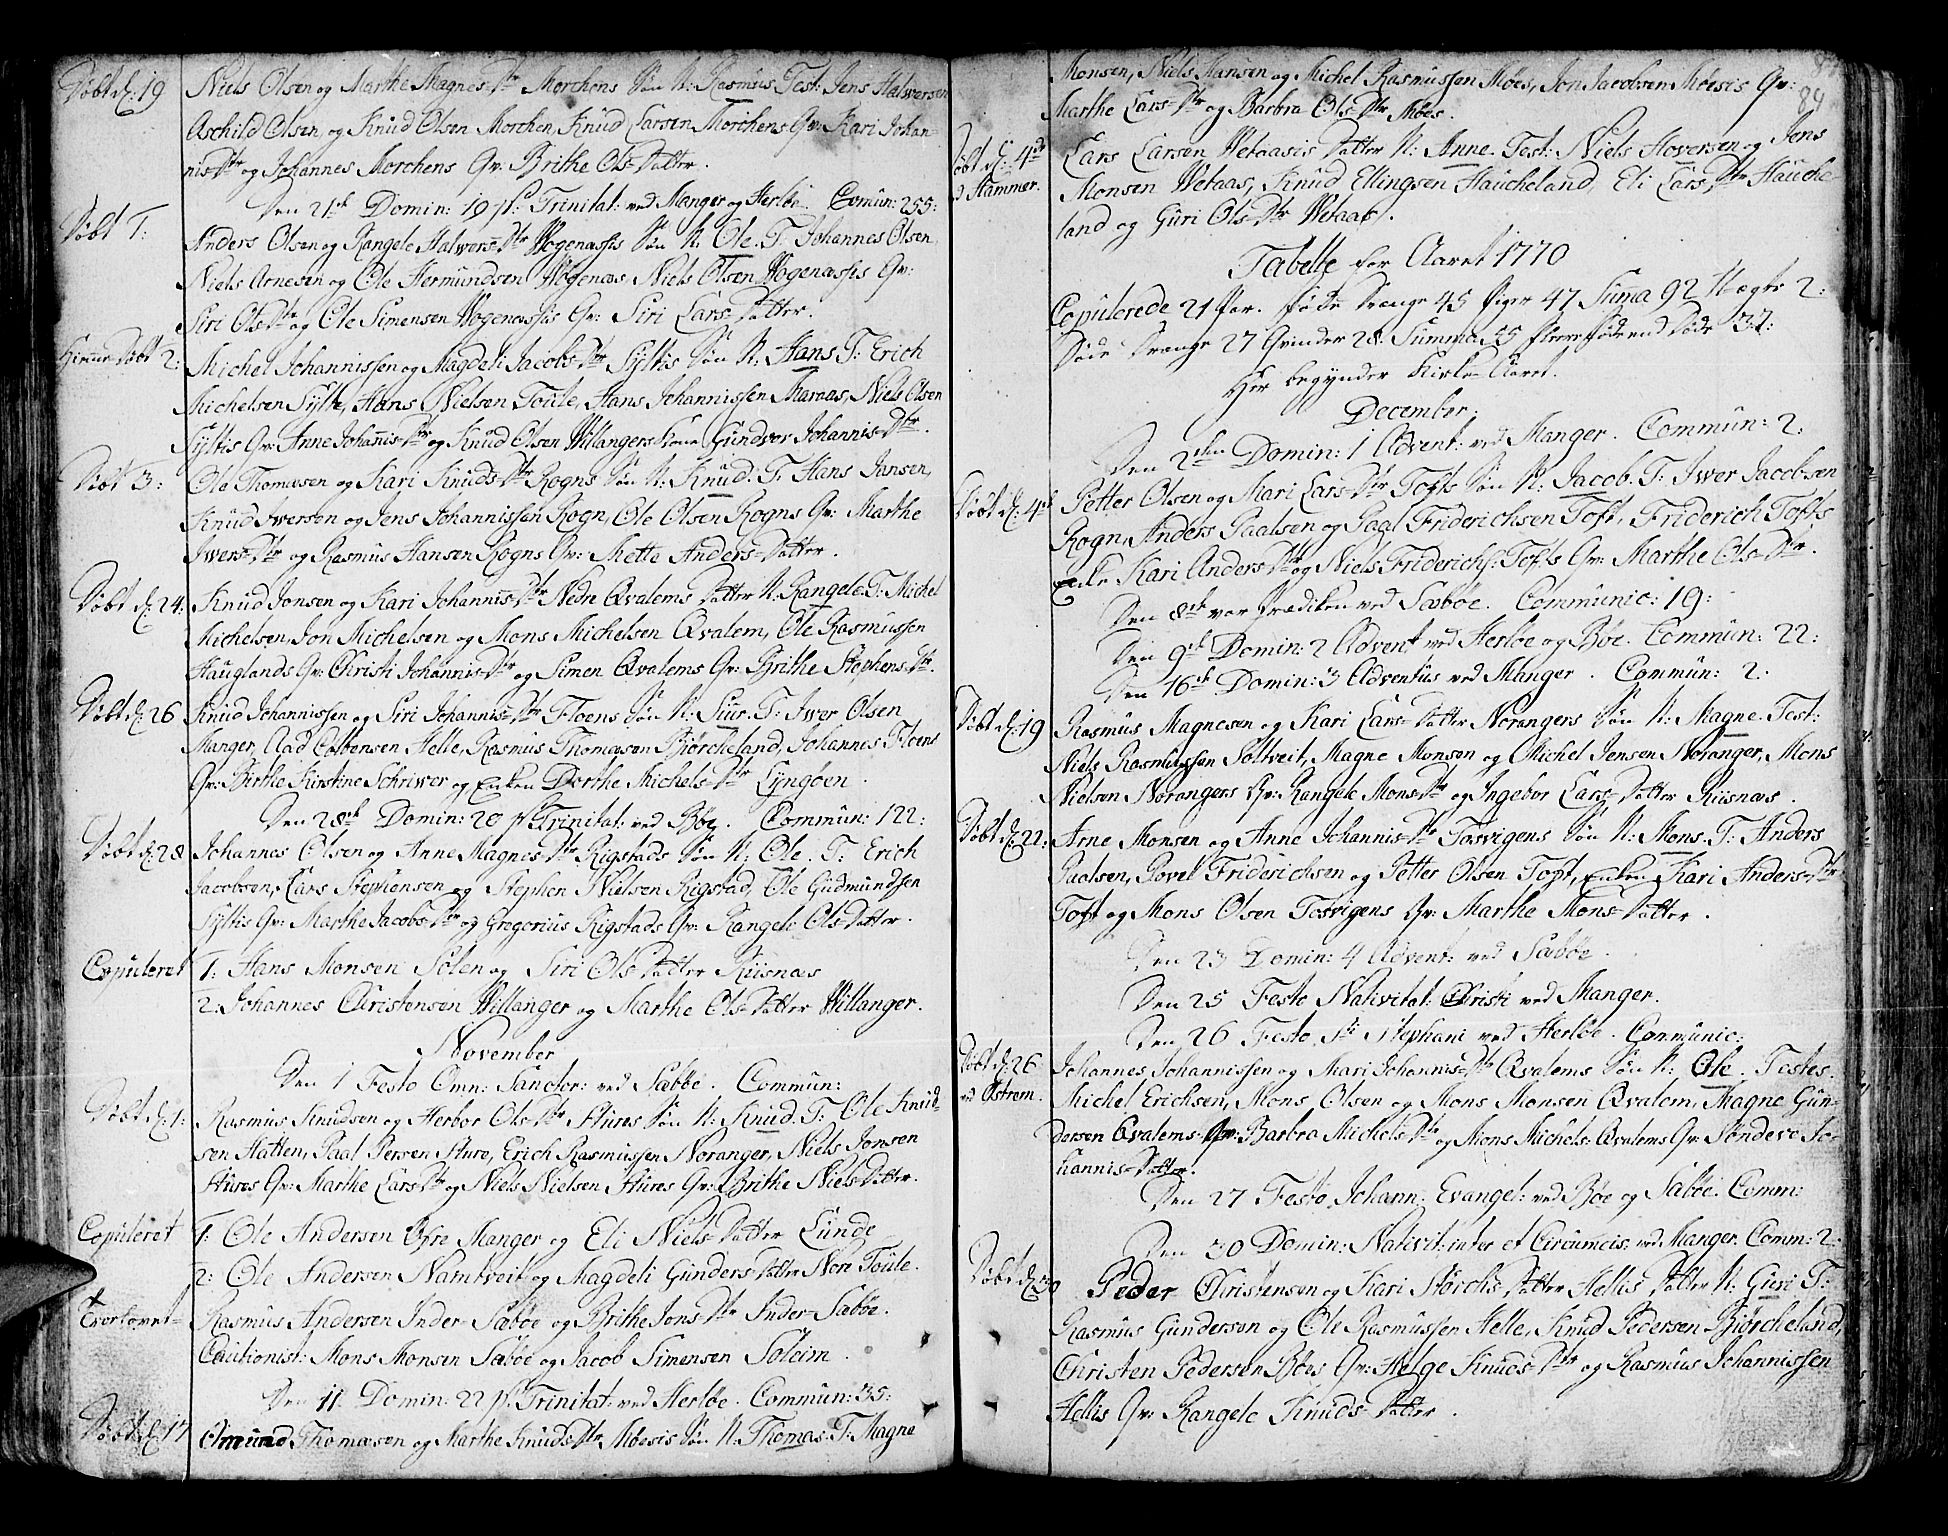 Døbt d: 19 Niels Olsen og Marthe Magnes Dtr Morchens Søn N: Rasmus Test: Jens Halvorsen
Aschild Olsen, og Knud Olsen Morchen, Knud Larsen Morchens Qv: Kari Johan-
nis Dtr og Johannes Morchens Qv: Brithe Ols Datter.
Den 21de Domin: 19 p. Trinitat: ved Manger og Herløe. Comun: 255:
Døbt 1: Anders Olsen og Rangele Halvers Dtr Wogenæssis Søn N. Ole. T. Johannes Olsen,
Niels Arnesen og Ole Hermundsen Wogenæs, Niels Olsen Wogenæssis Qv:
Siri Ols Dtr og Ole Simensen Wogenæssis Qv: Siri Lars Datter.
Hiemedøbt 2: Michel Johannissen og Magdeli Jacobs Dtr Syltis Søn N. Hans T: Erich
Michelsen Sylte, Hans Nielsen Toule, Hans Johannissen Maraas, Niels Olsen
Syltis Qv: Anne Johannis Dtr og Knud Olsen Willangers Kone Gundvor Johannis Dtr.
Døbt 3: Ole Thomæsen og Kari Knuds Dtr Rogns Søn N: Knud. T: Hans Jansen,
Knud Iwersen og Jens Johannissen Rogn, Ole Olsen Rogns Qv: Marthe
Iwers Dtr og Rasmus Hansen Rogns Qv: Mette Anders Datter.
Døbt d: 24: Knud Jonsen og Kari Johannis Dtr Nedre Qvalems Datter N. Rangele T: Michel
Michelsen, Jon Michelsen og Mons Michelsen Qvalem, Ole Rasmussen
Hauglands Qv: Christi Johannis Dtr og Simen Qvalems Qv: Brithe Stephens Dtr.
Døbt d: 26 Knud Johannissen og Siri Johannis Dtr Floens Søn N: Siur. T: Iwer Olsen
Manger, Aad Colbensen Helle, Rasmus Thomæsen Biørcheland, Johannes Floens
Qv: Birthe Kirstine Schriver og Enken Dorthe Michels Dtr Lyngøen.
Den 28de Domin: 20 p. Trinitat: ved Bøe. Commun: 122:
Døbt d: 28 Johannes Olsen og Anne Magnes Dtr Rigstads Søn N: Ole. T: Erich
Jacobsen, Lars Stephensen og Stephen Nielsen Rigstad, Ole Gudmundsen
Syltis Qv: Marthe Jacobs Dtr og Gregorius Rigstads Qv: Rangele Ols Datter.
Copuleret 1: Hans Monsen Solen og Siri Ols Datter Riisnæs
2: Johannes Christensen Willanger og Marthe Ols Datter Willanger.
November
Den 1 Festo Omn: Sanctor: ved Sæbøe. Commun:
Døbt d: 1: Rasmus Knudsen og Herbor Ols Dtr Stures Søn N: Knud. T: Ole Knud-
sen Hatten, Paal Persen Sture, Erich Rasmussen Noranger, Niels Jonsen
Stures Qv: Marthe Lars Dtr og Niels Nielsen Stures Qv: Brithe Niels Datter.
Copuleret 1: Ole Andersen Øfre Manger og Eli Niels Datter Lunde
2: Ole Andersen Namtveit og Magdeli Gunders Datter Nore Toule.
Trorlovet Rasmus Andersen Inder Sæbøe og Brithe Jons Dtr Inder Sæbøe.
Cautionist: Mons Monsen Sæbøe og Jacob Simensen Soleim.
Den 11 Domin: 22 p. Trinitat: ved Herløe. Commun: 35:
Døbt d: 17 Omund Thomæsen og Marthe Knuds Dtr Moesis Søn N. Thomas. T: Magne
84
Monsen, Niels Hansen og Michel Rasmussen Moes, Jon Jacobsen Moesis Qv:
Marthe Lars Dtr og Barbra Ols Dtr Moes.
Døbt d: 4de Lars Larsen Wetaasis Datter N: Anne. Test: Niels Hoversen og Jens
Hammer. Monsen Wetaas, Knud Ellingsen Haucheland, Eli Lars Dtr Hauche-
land og Guri Ols Dtr Wetaas.
Tabelle for Aaret 1770
Copulerede 21 Par. Fødde Drenge 45 Piger 47 Summa 92 Uægte 2:
Døde Drenge 27 Qvinder 28. Summa 55 flere fødde end døde 37:
Her begynder Kirke Aaret.
December.
Den 2den Domin: 1 Advent: ved Manger. Commun: 2:
Døbt d: 4de Petter Olsen og Mari Lars Dtr Tofts Søn N: Jacob. T: Iwer Jacobsen
Rogn, Anders Paalsen og Paal Friderichsen Toft, Friderich Tofts
Enke Kari Anders Dtr og Niels Friderichs: Tofts Qv: Marthe Ols Dtr.
Den 8de var Prædiken ved Sæbøe. Communic: 19:
Den 9de Domin: 2 Advent ved Herløe og Bøe. Commun: 22:
Den 16de Domin: 3 Adventus ved Manger. Commun: 2:
Døbt d: 19 Rasmus Magnesen og Kari Lars Datter Norangers Søn N: Magne. Test:
Niels Rasmussen Soltveit, Magne Monsen og Michel Jensen Noranger, Mons
Nielsen Norangers Qv: Rangele Mons Dtr og Ingebor Lars Datter Riisnæs.
Døbt d: 22: Arne Monsen og Anne Johannis Dtr Tosvigens Søn N: Mons. T: Anders
Paalsen, Povel Friderichsen og Petter Olsen Toft, Enken Kari Anders Dtr
Toft og Mons Olsen Tosvigens Qv: Marthe Mons Datter.
Den 23 Domin: 4 Advent: ved Sæbøe.
Den 25 Festo Nativitat: Christi ved Manger.
Den 26 Festo Sti Stephani ved Herløe. Communic:
Døbt d: 26 Johannes Johannissen og Mari Johannis Dtr Qvalems Søn N: Ole. Testes
ved Østrem. Michel Erichsen, Mons Olsen og Mons Monsen Qvalem, Magne Gun-
dersen Qvalems Qv: Barbra Michels Dtr og Mons Michels: Qvalems Qv: Søndeve Jo-
hannis Datter.
Den 27 Festo Johann: Evangel: ved Bøe og Sæbøe. Comm:
Den 30 Domin: Nativit: inter et Circumcis: ved Manger. Comm: 2:
Døbt d: 30 Peder Christensen og Kari Størchs Datter Hellis Datter N: Guri T:
Rasmus Gundersen og Ole Rasmussen Helle, Knud Pedersen Biørcheland,
Christen Pedersen Bøes Qv: Helge Knuds Dtr og Rasmus Johannissen
Hellis Qv: Rangele Knuds Datter.